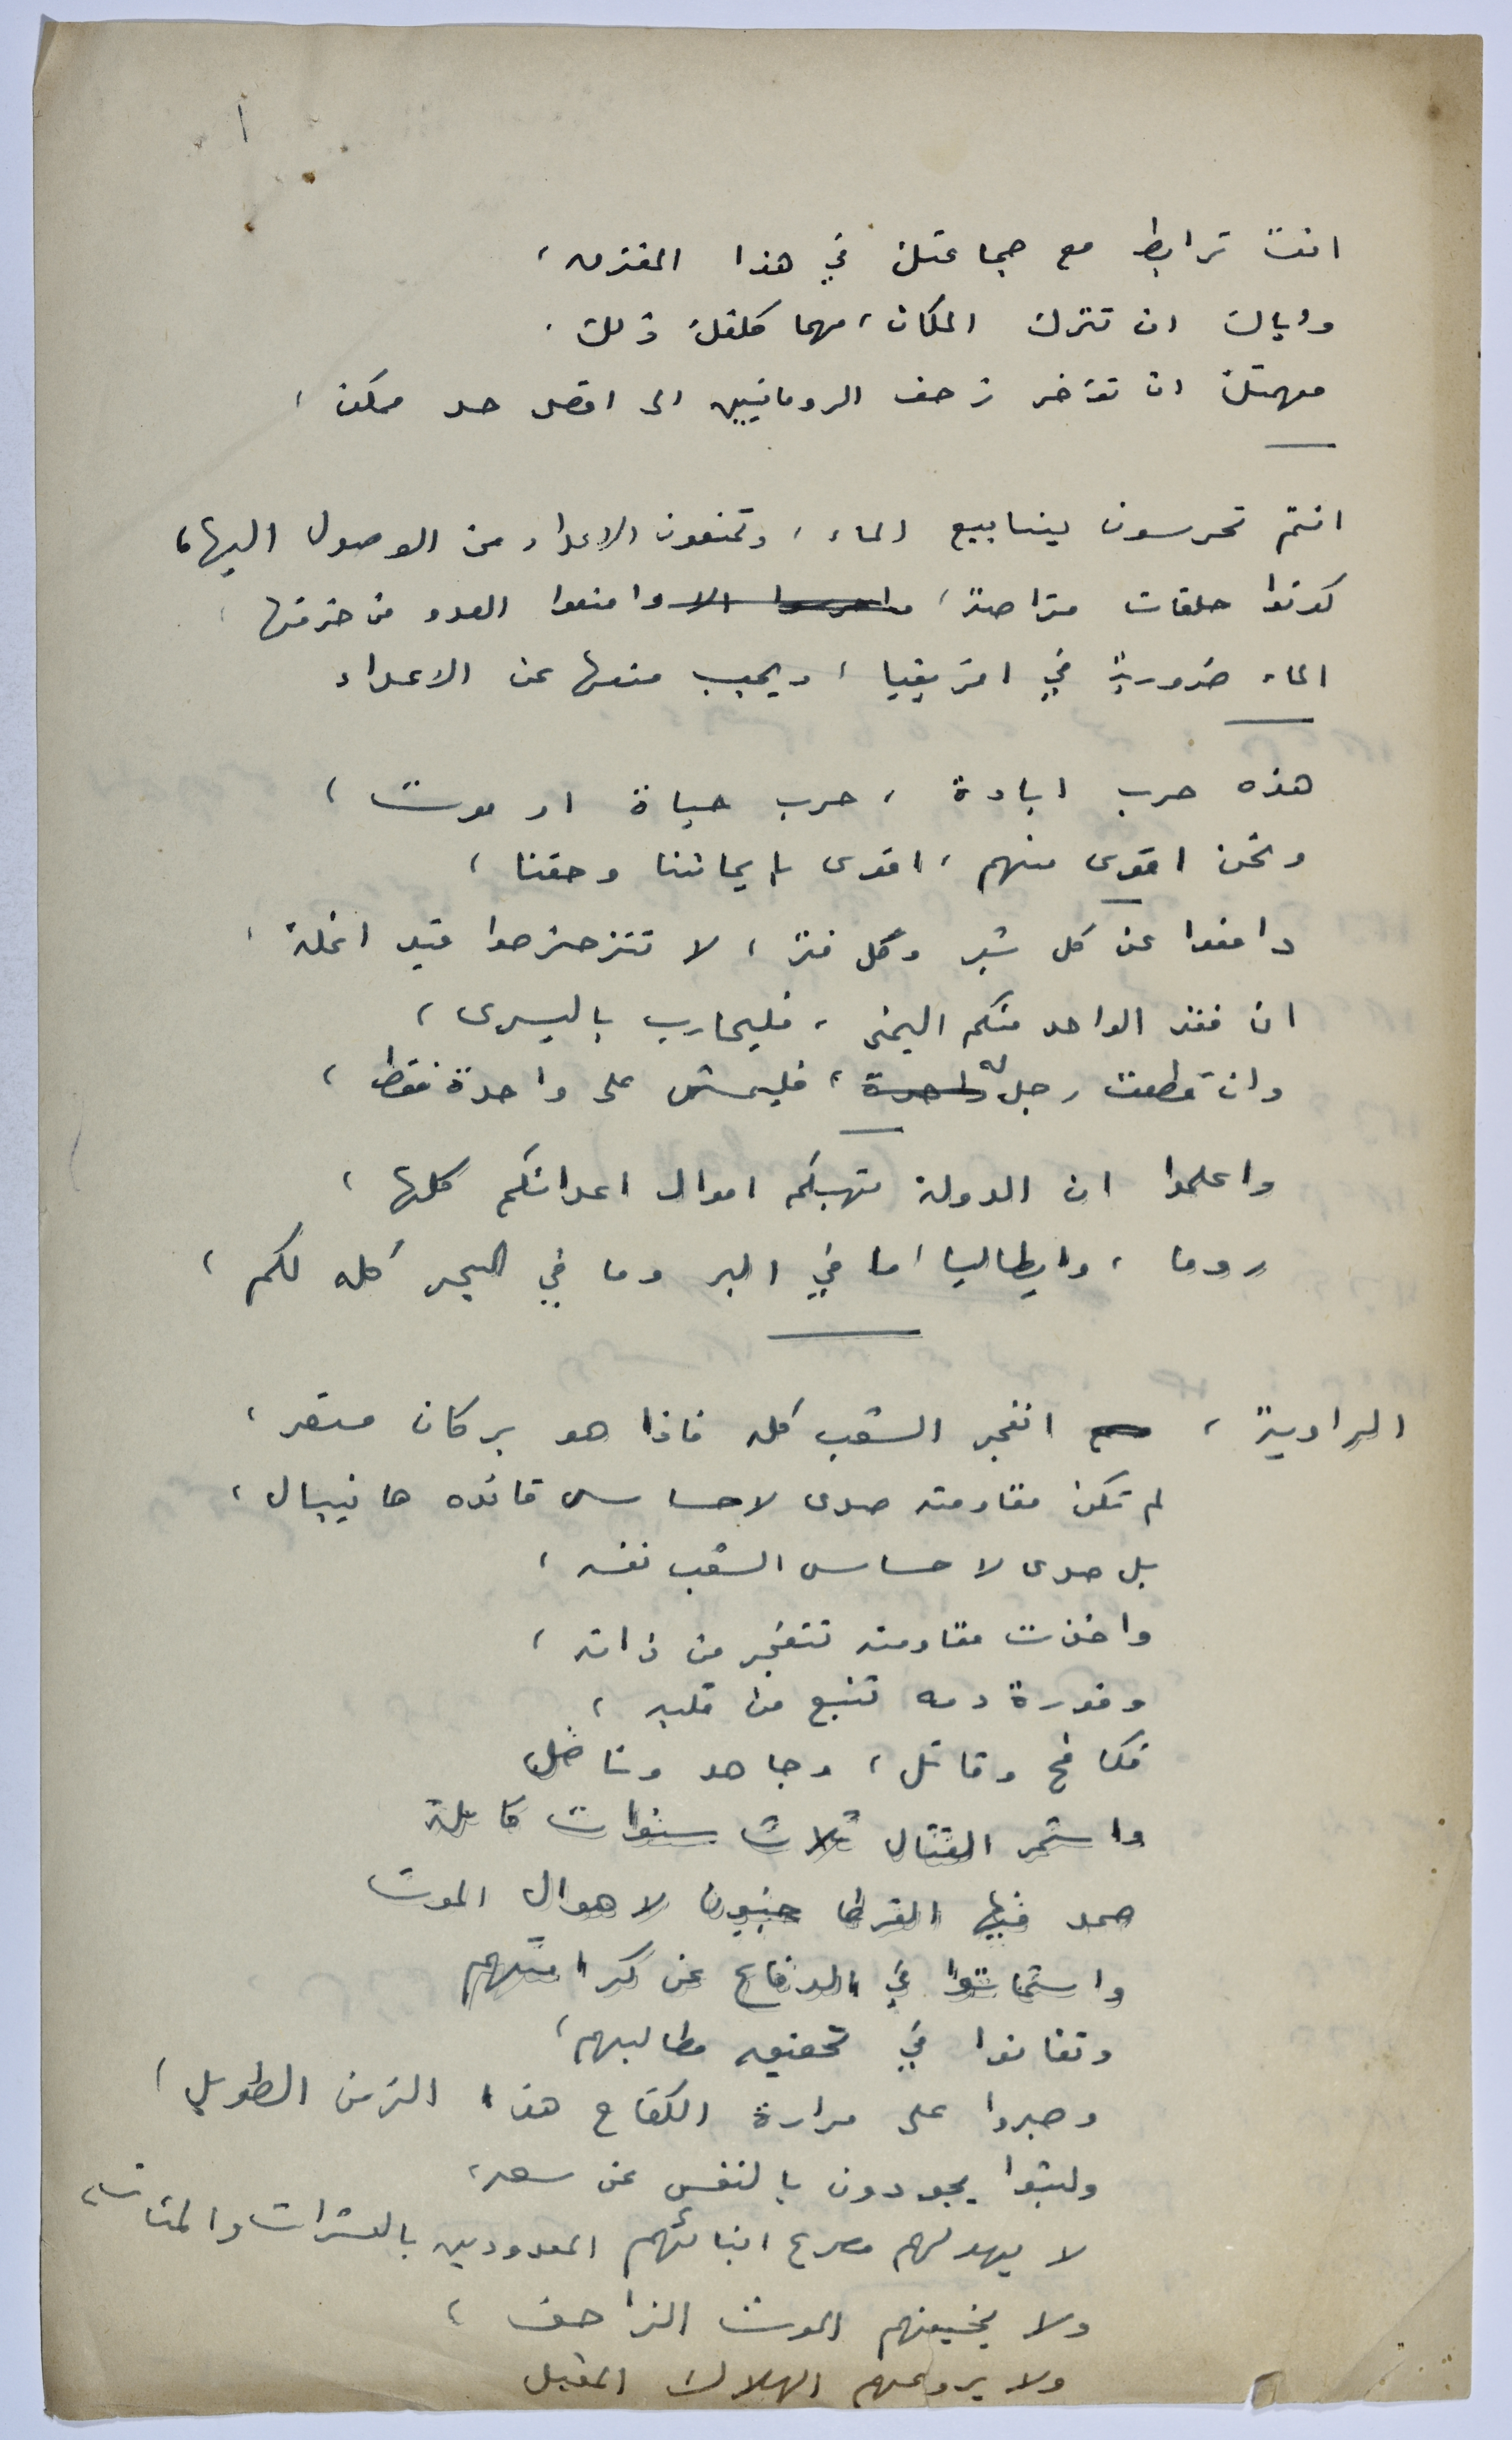 انت ترابط مع جماعتك في هذا المفترق،
واياك ان تترك المكان، مهما كلفك ذلك.
مهمتك ان تؤخر زحف الرومانيين الى اقصى حد ممكن،
انتم تحرسون ينابيع الماء، وتمنعون الاعداء من الوصول اليها،
كونوا حلقات متراصة، واحرسوا الا وامنعوا العدو من خرقها،
الماء ضرورية في افريقيا، ويجب منعها عن الاعداء
هذه حرب ابادة، حرب حياة او موت،
ونحن اقوى منهم، اقوى بايماننا وحقنا،
دافعوا عن كل شبر وكل فتر، لا تتزحزحوا قيد انملة،
ان فقد الواحد منكم اليمنى، فليحارب باليسرى،
وان قطعت رجل له واحدة، فليمش على واحدة فقط،
واعلموا ان الدولة ستهبكم اموال اعدائكم كلها،
روما، وايطاليا، ما في البر وما في البحر كله لكم،
الراوية، انفجر الشعب كله فاذا هو بركان مستعر،
لم تكن مقاومته صدى لاحساس قائده هانيبال،
بل صدى لاحساس الشعب نفسه،
واخذت مقاومته تتفجر من ذاته،
وفورة دمه تنبع من قلبه،
فكافح وقاتل، وجاهد وناضل
واستمر القتال ثلاث سنوات كاملة
صمد فيها القرطاجنيون لاهوال الموت
واستماتوا في الدفاع عن كرامتهم
وتفانوا في تحقيق مطالبهم،
وصبروا على مرارة الكفاح هذا الزمن الطويل،
ولبثوا يجودون بالنفس عن سعة،
لا يهولهم مصرع ابنائهم المعدودين بالعشرات والمئات،
ولا يخيفهم الموت الزاحف،
ولا يروعهم الهلاك المقبل